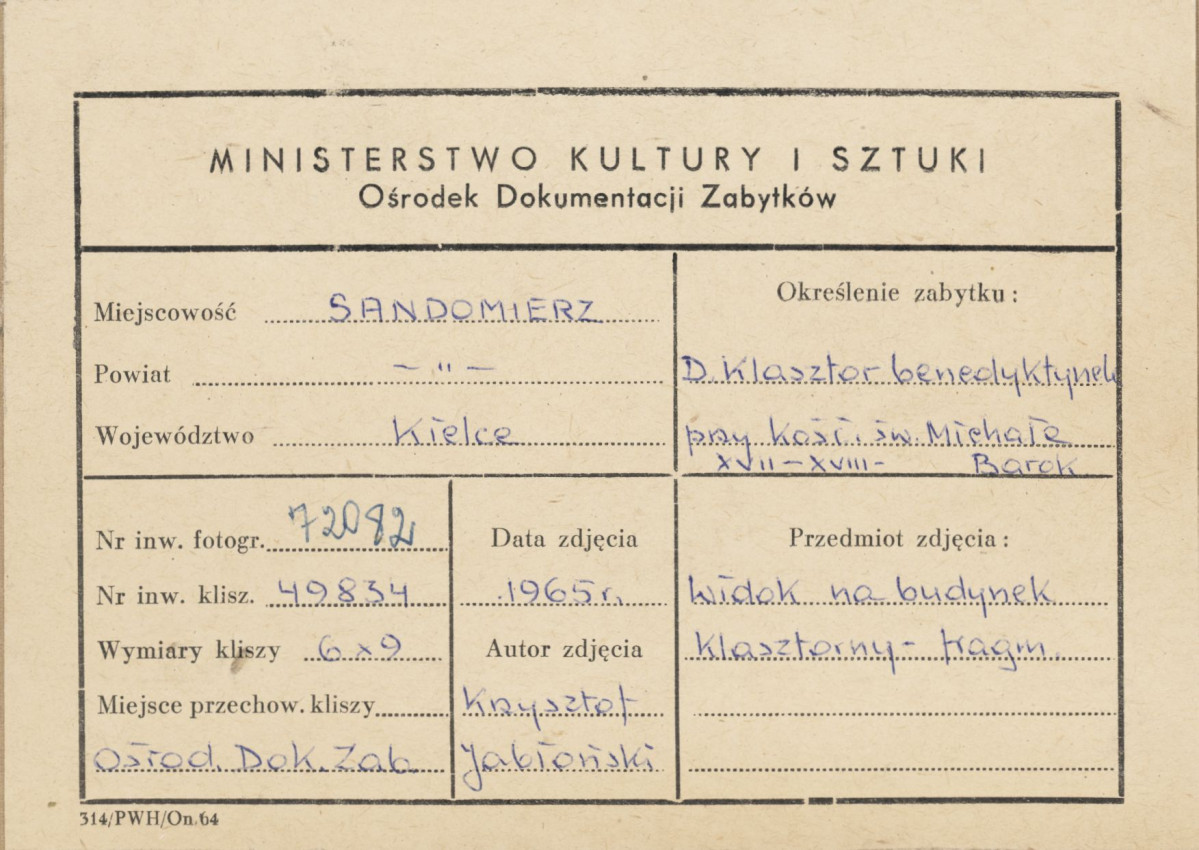 MINISTERSTWO KULTURY I SZTUKI
Ośrodek Dokumentacji Zabytków
Miejscowość SANDOMIERZ
Powiat — " —
Województwo Kielce
Określenie zabytku:
D. Klasztor benedyktynek
przy kość. św. Michała
XVII-XVIII- Barok
Nr inw. fotogr. 72082
Nr inw. klisz. 49834
Wymiary kliszy 6x9
Miejsce przechow. kliszy
Ośrod. Dok. Zab
Data zdjęcia
1965r.
Autor zdjęcia
Krzysztof
Jabłoński
Przedmiot zdjęcia:
Widok na budynek
Klasztorny - fragm.
314/PWH/On.64